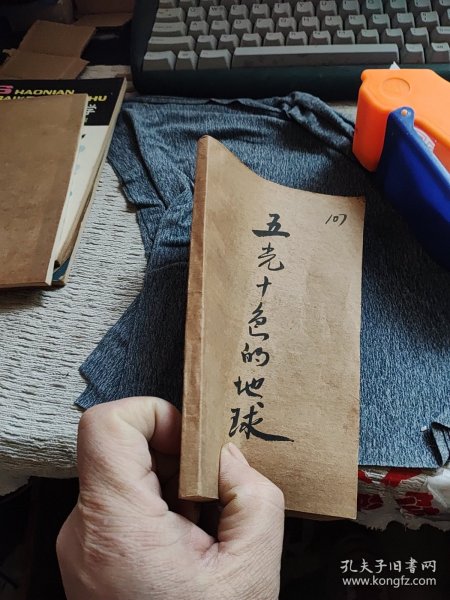 HAONIAN
HU
107
五光十色的地球
孔夫子旧书网
www.kongfz.com